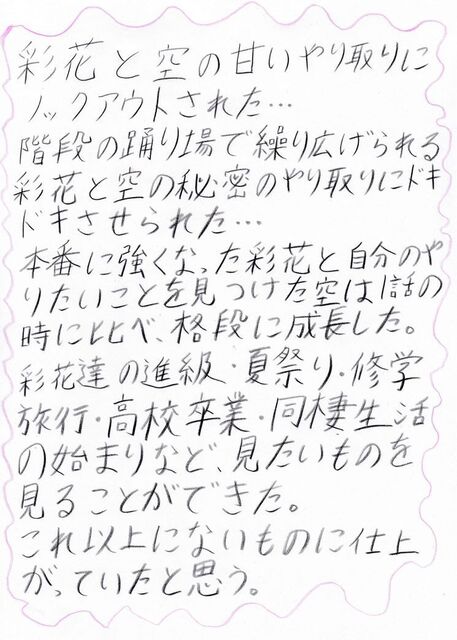 彩花と空の甘いやり取りに
ノックアウトされた…
階段の踊り場で繰り広げられる
彩花と空の秘密のやり取りにドキ
ドキさせられた…
本番に強くなった彩花と自分のや
りたいことを見つけた空は1話の
時に比べ、格段に成長した。
彩花達の進級・夏祭り・修学
旅行・高校卒業・同棲生活
の始まりなど、見たいものを
見ることができた。
これ以上にないものに仕上
がっていたと思う。